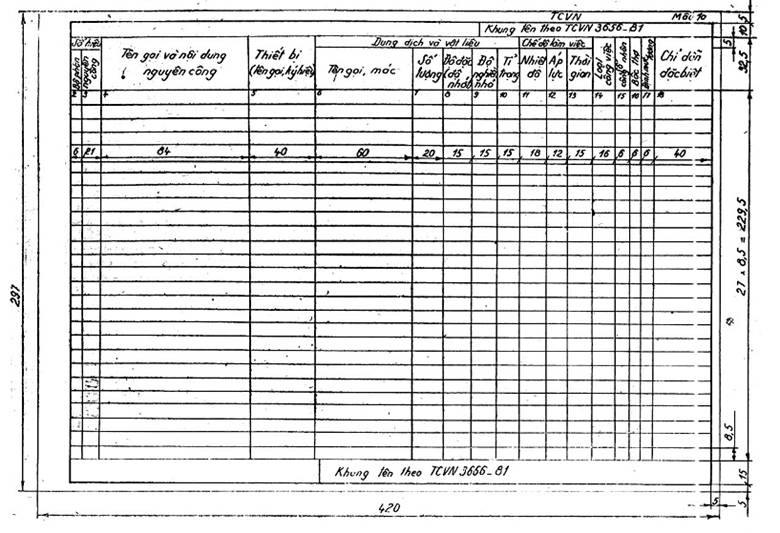 TCVN Mẫu 10
Khung tên theo TCVN 3656-81
Số hiệu
Bộ phận
nguyên công
Tên gọi và nội dung
nguyên công
Thiết bị
(tên gọi, ký hiệu)
Dung dịch và vật liệu
Tên gọi, mác
Số
lượng
Độ đặc
(độ
nhớt)
Độ
nghiền
nhỏ
Tỉ
trọng
Chế độ làm việc
Nhiệt
độ
Áp
lực
Thời
gian
Loại
công việc
công nhân
Bậc thợ
Chỉ dẫn
đặc biệt
4 5 6 7 8 9 10 11 12 13 14 15 16 17 18
6 21 84 40 60 20 15 15 15 18 12 15 16 6 6 6 40
Khung tên theo TCVN 3656-81
297
420
5
10
5
32,5
27 x 8,5 = 229,5
8,5
15
5
5